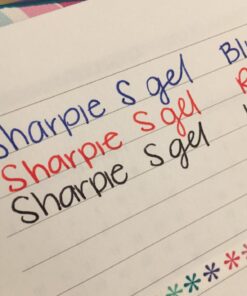 Sharpie S gel Bl
Sharpie S gel R
Sharpie S gel